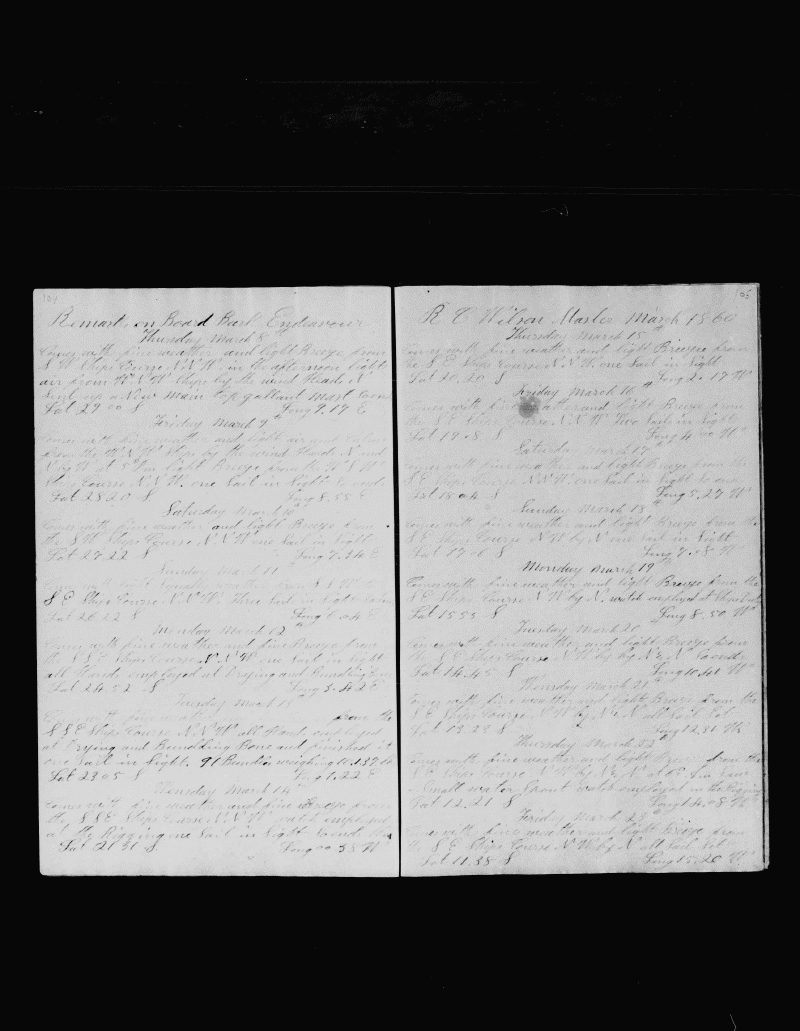 104
Remarks on Board Bark Endeavour
Thursday March 8
Comes with fine weather and light Breeze from
S W Ships Course N.N.W. in the afternoon light
air from W.N.W Ships by the wind Heads N
Sent up a New main top gallant mast
Lat 29.00 S Long 9.17 E
Friday March 9
Comes with fine weather and light air and
from the W.N.W Ships by the wind Heads N and
N by W at 5 P.m light Breeze from the W.S.W
Ships Course N.N.W. one Sail in Sight So ends
Lat 28.20 S Long 8.55 E
Saturday March 10
Comes with fine weather and light Breeze from
the S.W Ships Course N.N.W one Sail in Sight
Lat 27.22 S Long 7.26 E
Sunday March 11
Comes with light
S E Ships Course N.N.W. Three Sail in Sight
Lat 26.22 S Long 6.04 E
Monday March 12
Comes with fine weather and fine Breeze from
the S E Ships Course N.N.W one Sail in Sight
all Hands employed at Drying and Bundling
Lat 24.52 S Long 3.42 E
Tuesday March 13
Comes with fine weather from the
S S E Ships Course N.N.W all Hands employed
at Drying and Bundling Bone and finished it
one Sail in Sight. 91 Bundles weighing
Lat 23.05 S Long 1.22 E
March 14
Comes with fine weather and fine Breeze from
the S S E Ships Course N.N.W watch employed
at the Rigging one Sail in Sight So ends
Lat 21.51 S Long 00.38 W
105
R T Wilson Master March 1860
Thursday March 15
Comes with fine weather and light Breeze from
the S E Ships Course N.N.W. one Sail in Sight
Lat 20.20 S Long 2.17 W
Friday March 16
Comes with fine weather and light Breeze from
the S E Ships Course N.N.W Two Sail in Sight
Lat 19.08 S Long 4.00 W
Saturday March 17
Comes with fine weather and light Breeze from the
S E Ships Course N.N.W. one Sail in Sight So ends
Lat 18.04 S Long 5.27 W
Sunday March 18
Comes with fine weather and light Breeze from the
S E Ships Course N W by N one Sail in Sight
Lat 17.06 S Long 7.08 W
Monday March 19
Comes with fine weather and light Breeze from the
S E Ships Course N W by N. watch employed at Ships Duty
Lat 15.55 S Long 8.50 W
Tuesday March 20
Comes with fine weather and light Breeze from
the S E Ships Course N W by N So ends
Lat 14.45 S Long 10.41 W
March 21
Comes with fine weather and light Breeze from the
S E Ships Course N W by N all Sail Set
Lat 13.23 S Long 12.31 W
Thursday March 22
Comes with fine weather and light Breeze from the
S E Ships Course N W by N at 6 P.m Saw
a Small water Spout watch employed in the Rigging
Lat 12.21 S Long 14.08 W
Friday March 23
Comes with fine weather and light Breeze from
the S E Ships Course N W by N all Sail Set
Lat 11.38 S Long 15.20 W